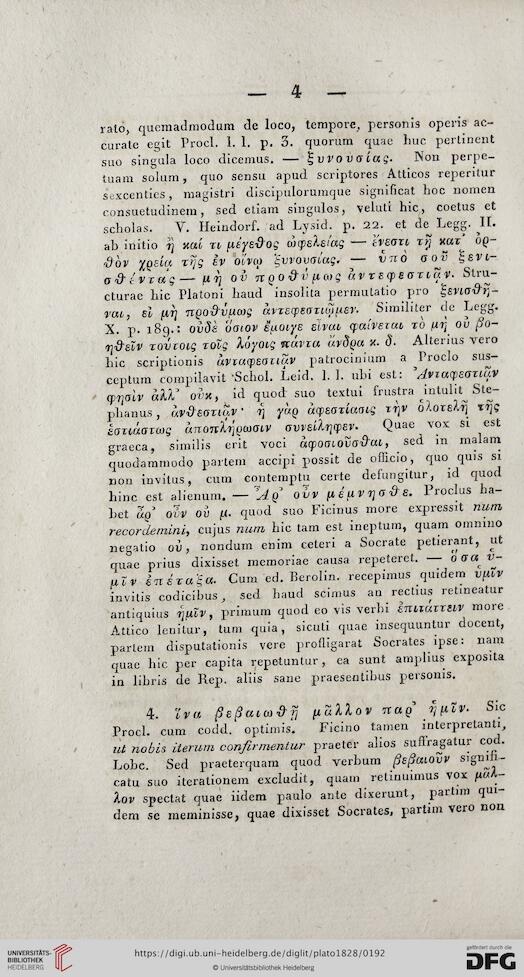 — 4 —
rato, quemadmodum de loco, tempore, personis operis ac-
curate egit Procl. l. l. p. 3. quorum quae huc pertinent
suo singula loco dicemus. — ξυνουσίας. Non perpe-
tuam solum, quo sensu apud scriptores Atticos reperitur
sexcenties, magistri discipulorumque significat hoc nomen
consuetudinem, sed etiam singulos, veluti hic, coetus et
scholas. V. Heindorf. ad Lysid. p. 22. et de Legg. II.
ab initio ἢ καί τι μέγεθος ὠφελείας — ἔνεστι τῇ κατ᾽ ὀρ-
θὸν χρείᾳ τῆς ἐν οἴνῳ ξυνουσίας. — ὑπὸ σοῦ ξενι-
σθέντας — μὴ οὐ προθύμως ἀντεφεστιᾷν. Stru-
cturae hic Platoni haud insolita permutatio pro ξενισθῆ-
ναι, εἰ μὴ προθύμως ἀντεφεστιῷμεν. Similiter de Legg.
X. p. 189.: οὐδὲ ὅσιον ἔμοιγε εἶναι φαίνεται τὸ μὴ οὐ βο-
ηθεῖν τούτοις τοῖς λόγοις πάντα ἄνδρα κ. δ. Alterius vero
hic scriptionis ἀνταφεστιᾷν patrocinium a Proclo sus-
ceptum compilavit Schol. Leid. l. l. ubi est: Ἀνταφεστιᾷν
φησὶν ἀλλ᾽ οὐκ, id quod suo textui frustra intulit Ste-
phanus, ἀνθεστιᾷν· ἡ γὰρ ἀφεστίασις τὴν ὁλοτελῆ τῆς
ἑστιάσεως ἀποπλήρωσιν συνείληφεν. Quae vox si est
graeca, similis erit voci ἀφοσιοῦσθαι, sed in malam
quodammodo partem accipi possit de officio, quo quis si
non invitus, cum contemptu certe defungitur, id quod
hinc est alienum. — Ἆρ᾽ οὖν μέμνησθε. Proclus ha-
bet ἆρ᾽ οὖν οὐ μ. quod suo Ficinus more expressit num
recordemini, cujus num hic tam est ineptum, quam omnino
negatio οὐ, nondum enim ceteri a Socrate petierant, ut
quae prius dixisset memoriae causa repeteret. — ὅσα ὑ-
μῖν ἐπέταξα. Cum ed. Berolin. recepimus quidem ὑμῖν
invitis codicibus, sed haud scimus an rectius retineatur
antiquius ἡμῖν, primum quod eo vis verbi ἐπιτάττειν more
Attico lenitur, tum quia, sicuti quae insequuntur docent,
partem disputationis vere profligarat Socrates ipse: nam
quae hic per capita repetuntur, ea sunt amplius exposita
in libris de Rep. aliis sane praesentibus personis.
4. ἵνα βεβαιωθῇ μᾶλλον παρ᾽ ἡμῖν. Sic
Procl. cum codd. optimis. Ficino tamen interpretanti,
ut nobis iterum confirmentur praeter alios suffragatur cod.
Lobc. Sed praeterquam quod verbum βεβαιοῦν signifi-
catu suo iterationem excludit, quam retinuimus vox μᾶλ-
λον spectat quae iidem paulo ante dixerunt, partim qui-
dem se meminisse, quae dixisset Socrates, partim vero non
UNIVERSITÄTS-
BIBLIOTHEK
HEIDELBERG
https://digi.ub.uni-heidelberg.de/diglit/plato1828/0192
© Universitätsbibliothek Heidelberg
gefördert durch die
DFG